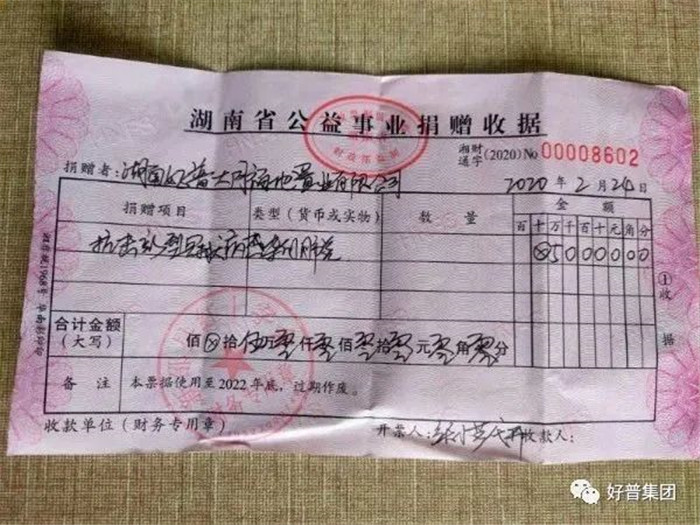 湖南省公益事业捐赠收据
财政部监制
湘财通字(2020) No 00008602
捐赠者: 湖南好普大同福地置业有限公司 2020年2月24日
捐赠项目 类型(货币或实物) 数量 金额
百十万千百十元角分
抗击新型冠状病毒 ⊗5000000
合计金额(大写) 佰⊗拾伍万零仟零佰零拾零元零角零分
备注 本票据使用至2022年底,过期作废。
收款单位(财务专用章) 开票人: 收款人:
①收据
好普集团